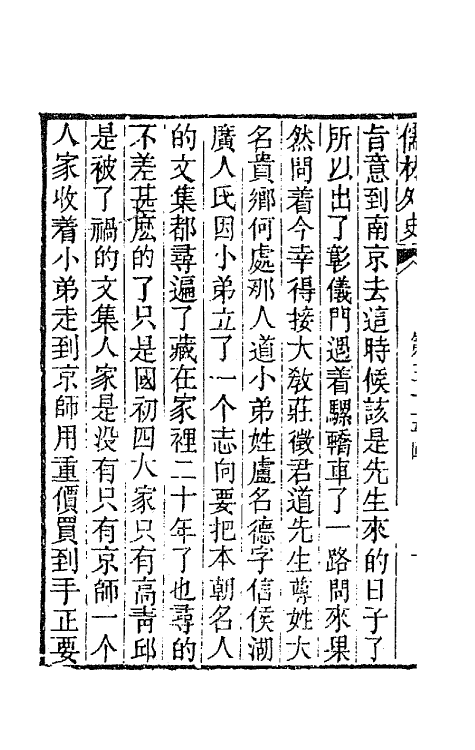 儒林外史
旨意到南京去這時候該是先生來的日子了
所以出了彰儀門遇着騾轎車子一路問來果
然問着今幸得接大教莊徵君道先生尊姓大
名貴鄉何處那人道小弟姓盧名德字信侯湖
廣人氏因小弟立了一个志向要把本朝名人
的文集都尋遍了藏在家裡二十年了也尋的
不差甚麽的了只是國初四大家只有高靑邱
是被了禍的文集人家是没有只有京師一个
人家收着小弟走到京師用重價買到手正要